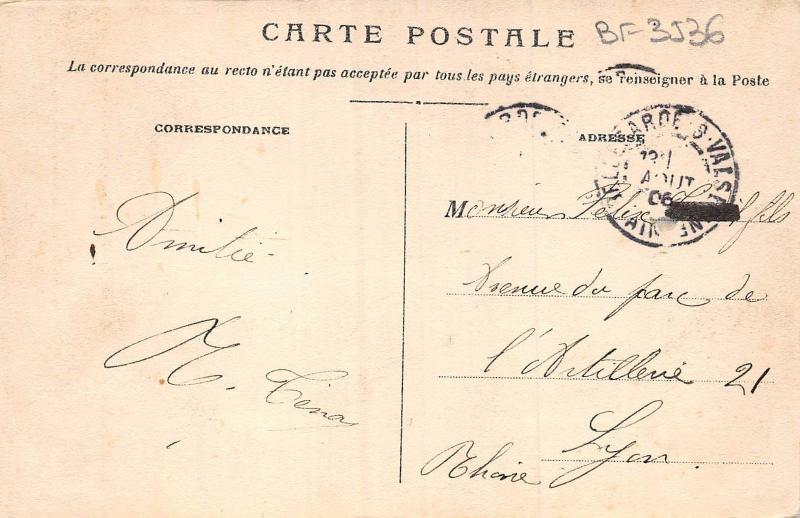 CARTE POSTALE BF-3536
La correspondance au recto n'étant pas acceptée par tous les pays étrangers, se renseigner à la Poste
CORRESPONDANCE
Amitié
ADRESSE
AOUT
06
Monsieur Félix fils
Avenue du parc de
l'Artillerie 21
Lyon
Rhône